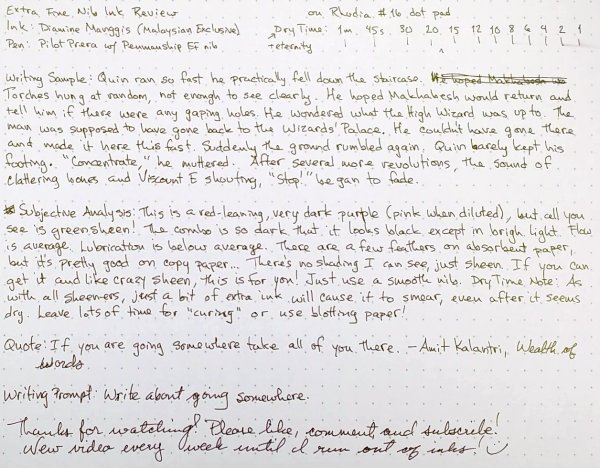 Extra Fine Nib Ink Review on Rhodia #16 dot pad
Ink: Diamine Manggis (Malaysian Exclusive) Dry Time: 1m 45s 30 20 15 12 10 8 6 4 2 1
Pen: Pilot Prera w/ Penmanship EF nib + eternity
Writing Sample: Quin ran so fast he practically fell down the staircase. He hoped Makhabesh
Torches hung at random, not enough to see clearly. He hoped Makhabesh would return and
tell him if there were any gaping holes. He wondered what the High Wizard was up to. The
man was supposed to have gone back to the Wizards' Palace. He couldn't have gone there
and made it here this fast. Suddenly the ground rumbled again. Quin barely kept his
footing. "Concentrate," he muttered. After several more revolutions, the sound of
clattering bones and Viscount E shouting, "Stop!" began to fade.
Subjective Analysis: This is a red-leaning, very dark purple (pink when diluted), but all you
see is green sheen! The combo is so dark that it looks black except in brigh light. Flow
is average. Lubrication is below average. There are a few feathers on absorbent paper,
but it's pretty good on copy paper... There's no shading I can see, just sheen. If you can
get it and like crazy sheen, this is for you! Just use a smooth nib. Dry Time Note: As
with all sheeners, just a bit of extra ink will cause it to smear, even after it seems
dry. Leave lots of time for "curing" or use blotting paper!
Quote: If you are going somewhere take all of you there. - Amit Kalantri, Wealth of
Words
Writing Prompt: Write about going somewhere.
Thanks for watching! Please like, comment, and subscribe!
New video every week until I run out of inks!